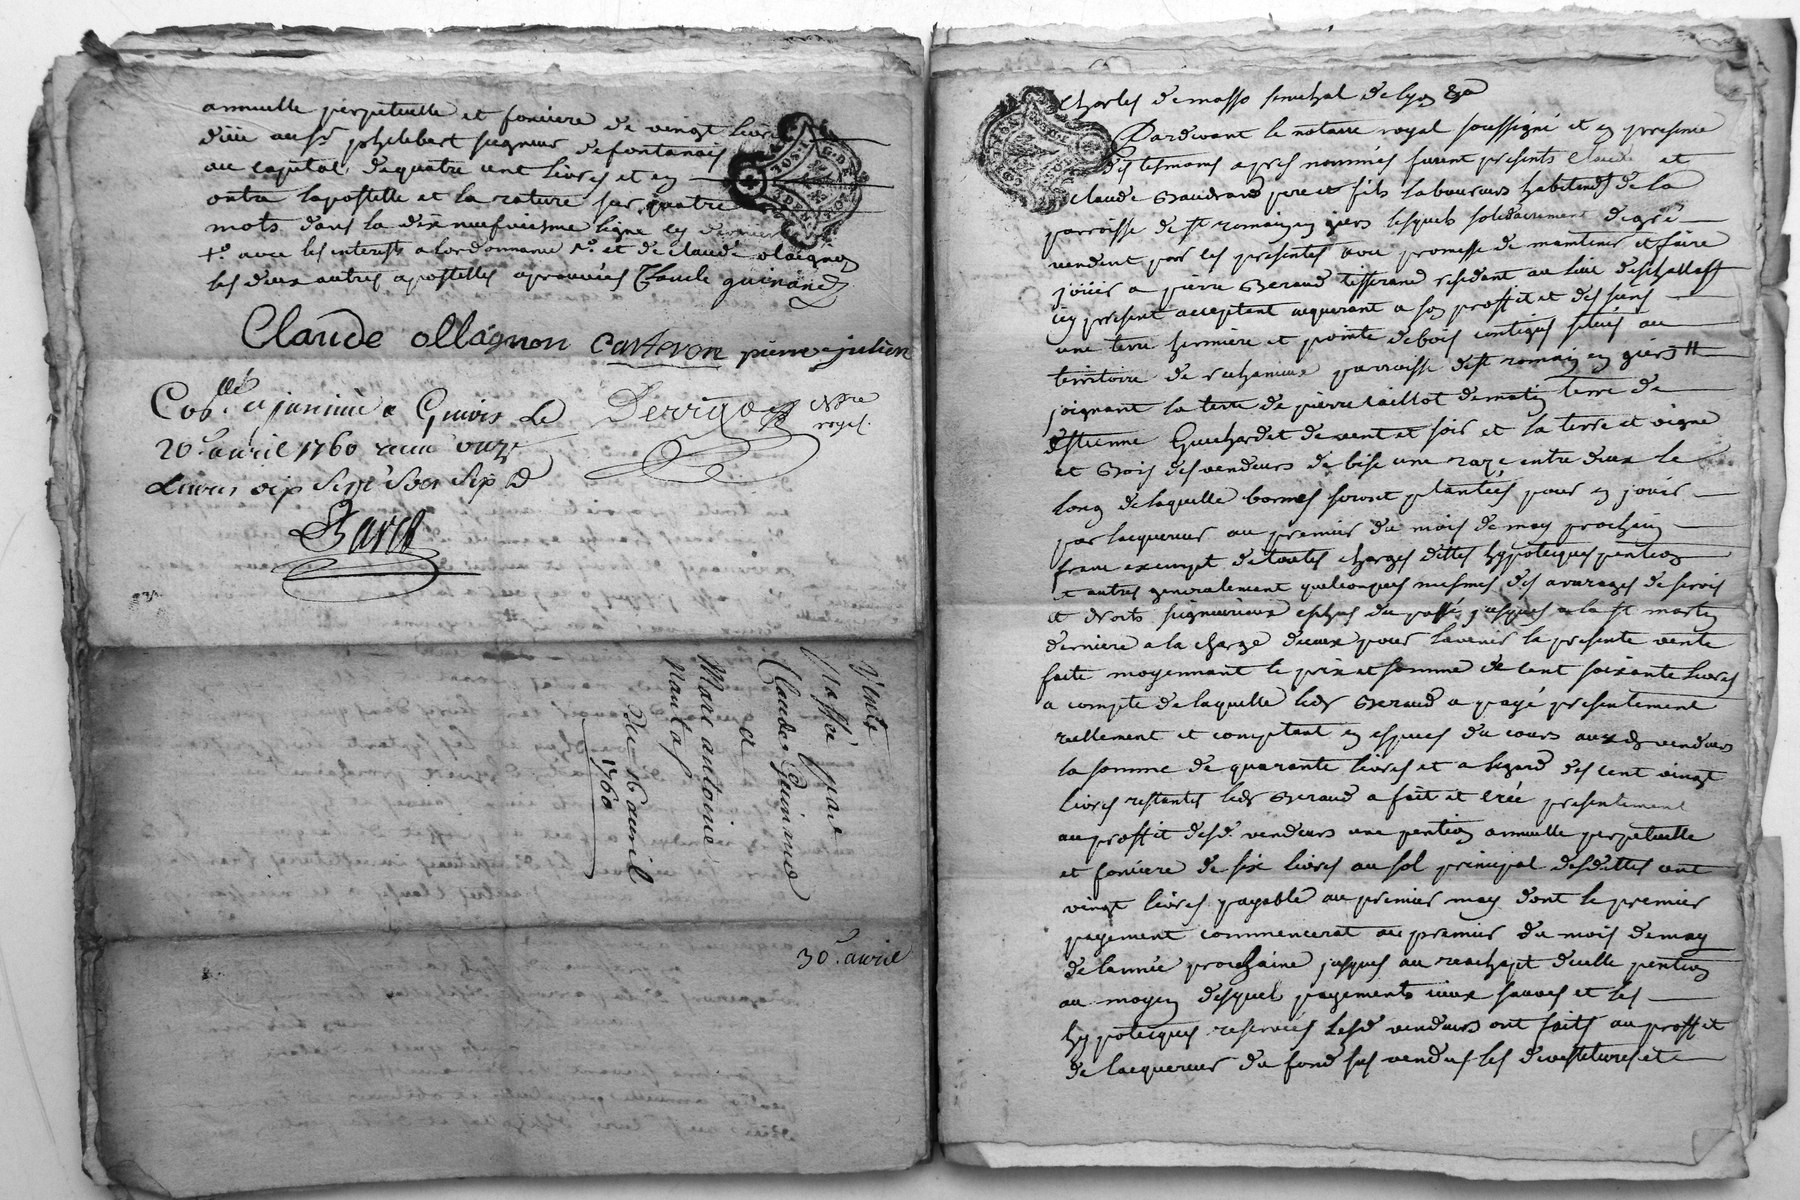 annuelle perpetuelle et fonciere de vingt livres
düe au Sr. philebert seigneur de fontanais
au capital de quatre cent livres et en
outre lapostelle et la rature sur quatre
mots dans la dix neufviesme ligne
avec les interests a lordonnance et de claude olaignon
les deux autres apostelles aprouvées Claude guinand
Claude ollagnon carteron pierre julien
Derrigo nore royal
Colle. et insinué a Givors le
20. avril 1760 recu onze
Livres dix sept sols six d
Bared
vente
passée par
Claude Guinand
a
Marc antoine
nantas
du 16 avril
1760
30. avril
Charles de masso senechal de lyon &a
Pardevant le notaire royal soussigné et en presence
des tesmoins apres nommés furent presents Claude et
Claude Gaudrand pere et fils laboureurs habitants de la
parroisse de st romain en giers lesquels solidairement de gré
vendent par les presentes avec promesse de maintenir et faire
jöuir a pierre Beraud tisserand residant au lieu deschallas
icy present acceptant acquerant a son proffit et des siens
une terre hermiere et pointe de bois contigus situés au
territoire de parroisse de st romain en giers
joignant la terre de pierre caillot de matin terre de
estienne Guichardet de vent et soir et la terre et vigne
et Bois des vendeurs de bise une raze entre deux le
long de laquelle bornes seront plantées pour en jouir
par lacquereur au premier du mois de may prochain
franc exempt de toutes charges dittes hypoteques pention
et autres generalement quelconques mesmes des arrerages de servis
et droits seigneuriaux eschus du passé jusques a la st martin
derniere a la charge diceux pour lavenir la presente vente
faite moyennant le prix et somme de cent soixante livres
a compte de laquelle ledt Beraud a payé presentement
reellement et comptant en especes du cours auxdt vendeurs
la somme de quarante livres et a legard des cent vingt
livres restantes ledt Beraud a fait et créé presentement
au proffit desd. vendeurs une pention annuelle perpetuelle
et fonciere de six livres au sol principal desdittes cent
vingt livres payable au premier may dont le premier
payement commencerat au premier du mois de may
de lannée prochaine jusques au reachapt dicelle pention
au moyen desquels payements iceux sauves et les
hypoteques reservées lesd vendeurs ont faits au proffit
de lacquereur du fond sus vendus les devestitures et